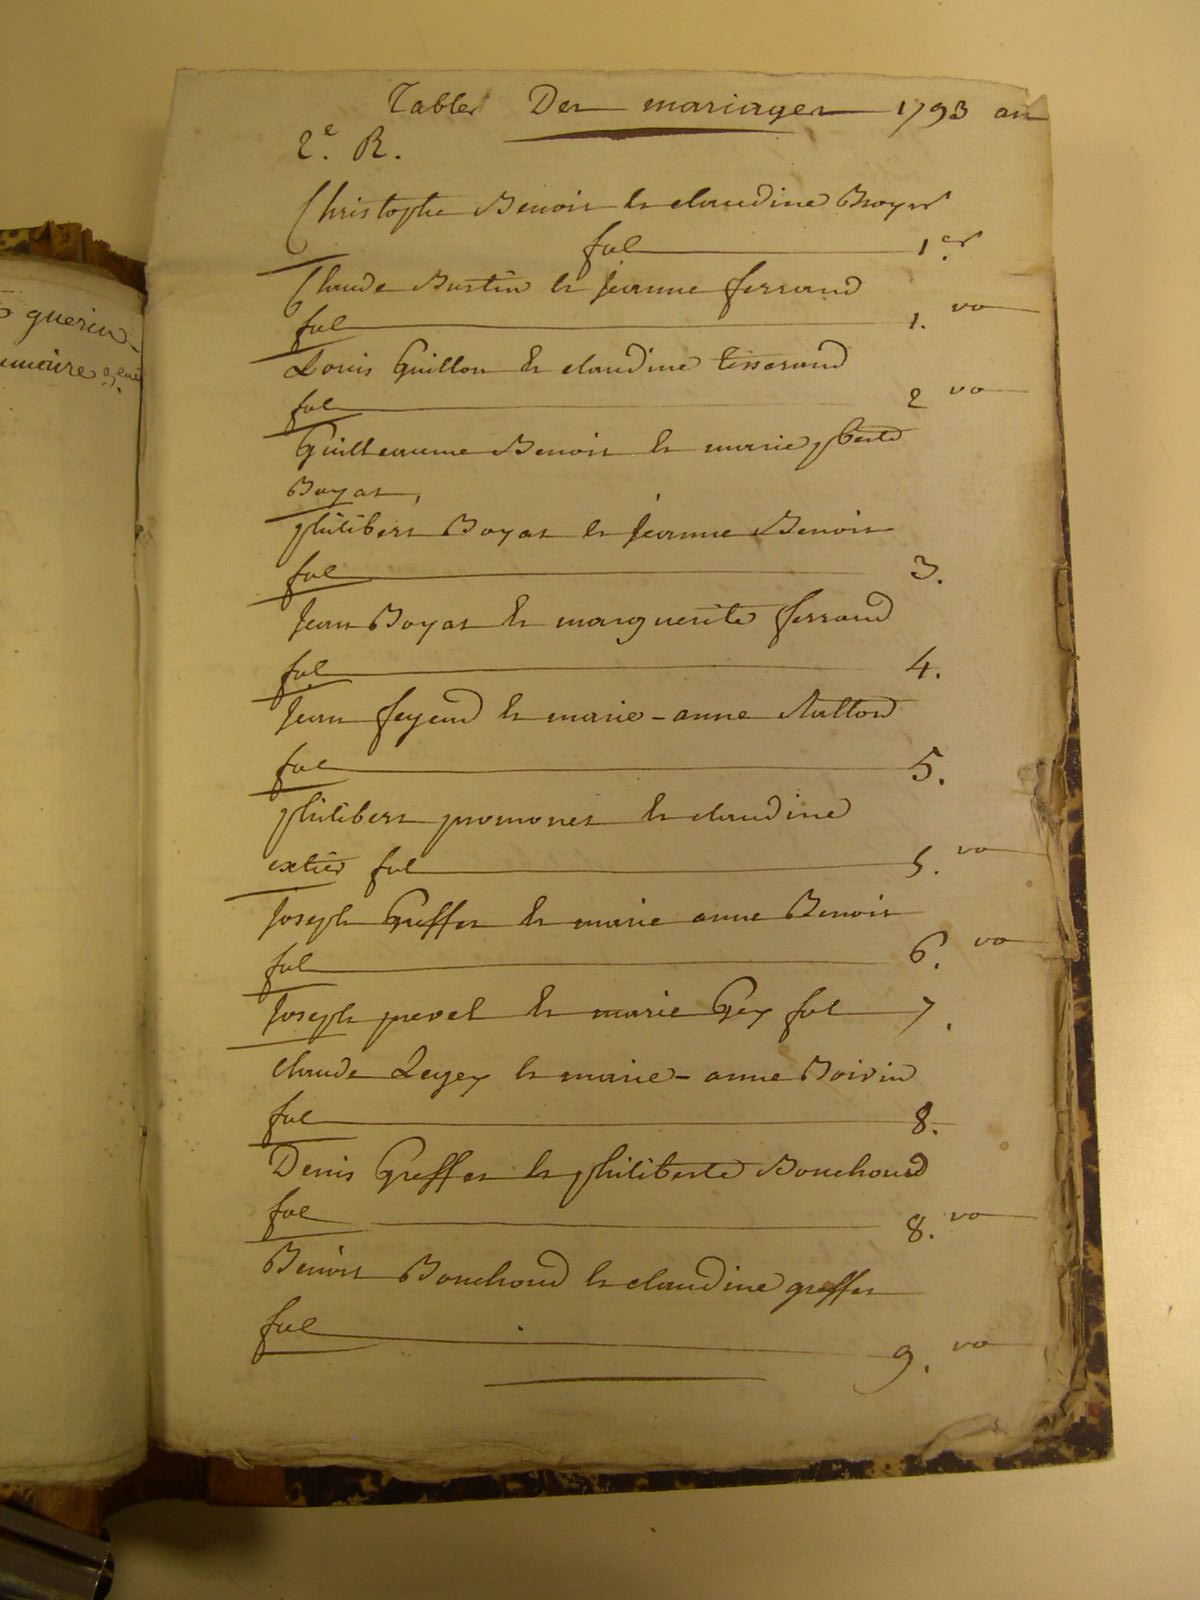 guerin
Table Des mariages 1793 an
2e. R.
Christophe Benoit & claudine Broyer
fol 1er
Claude Bustin & Jeanne ferrand
fol 1. vo
Louis Guillon & claudine tisserand
fol 2 vo
Guilleaume Benoit & marie philiberte
Boyat,
philibert Boyat & Jeanne Benoit
fol 3.
Jean Boyat & marguerite ferrand
fol 4.
Jean & marie-anne
fol 5.
philibert promonet & claudine
extier fol 5. vo
Joseph Greffet & marie anne Benoit
fol 6. vo
Joseph prevel & marie Gex fol 7.
claude & marie-anne Boivin
fol 8.
Denis Greffet & philiberte Bouchoud
fol 8. vo
Benoit Bouchoud & claudine greffet
fol 9. vo